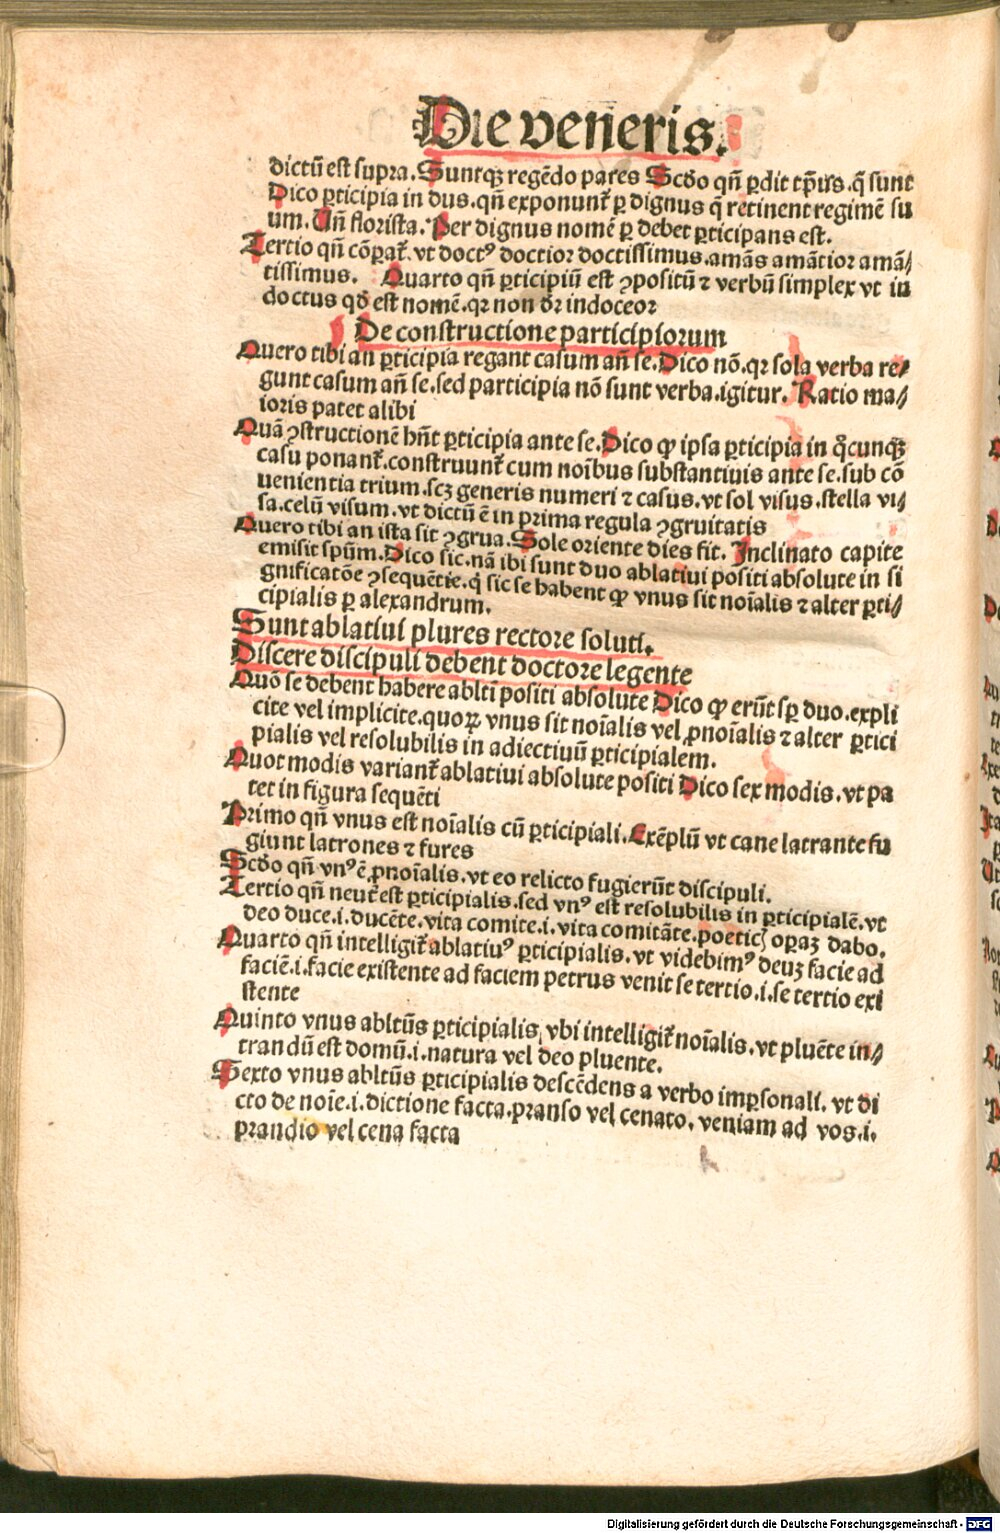 Die veneris.
dictū est supra. Suntqꝫ regēdo pares Scdo qn̄ ꝑdit tp̄us. q̄ sunt
Dico ꝑticipia in dus. qn̄ exponunt̄ ꝑ dignus q̄ retinent regimē su
um. Un̄ florista. Per dignus nomē ꝑ debet ꝑticipans est.
Tertio qn̄ cōꝑat̄. vt doctꝰ doctior doctissimus. amās amātior amā/
tissimus. Quarto qn̄ ꝑticipiū est ꝯpositū ⁊ verbū simplex vt in
doctus qd̄ est nomē. qꝛ non dr̄ indoceor
De constructione participiorum
Quero tibi an ꝑticipia regant casum an̄ se. Dico nō. qꝛ sola verba re/
gunt casum an̄ se. sed participia nō sunt verba. igitur. Ratio ma/
ioris patet alibi
Quā ꝯstructionē hn̄t ꝑticipia ante se. Dico ꝙ ipsa ꝑticipia in q̄cunqꝫ
casu ponant̄. construunt̄ cum noībus substantiuis ante se. sub cō
uenientia trium. scꝫ generis numeri ⁊ casus. vt sol visus. stella vi/
sa. celū visum. vt dictū ē in prima regula ꝯgruitatis
Quero tibi an ista sit ꝯgrua. Sole oriente dies fit. Inclinato capite
emisit spūm. Dico sic. nā ibi sunt duo ablatiui positi absolute in si
gnificatōe ꝯsequētie. q̄ sic se habent ꝙ vnus sit noīalis ⁊ alter ꝑti/
cipialis ꝑ alexandrum.
Sunt ablatiui plures rectore soluti.
Discere discipuli debent doctore legente
Quō se debent habere abltī positi absolute Dico ꝙ erūt sꝑ duo. expli
cite vel implicite. quoꝝ vnus sit noīalis vel ꝓnoīalis ⁊ alter ꝑtici
pialis vel resolubilis in adiectiuū ꝑticipialem.
Quot modis variant̄ ablatiui absolute positi Dico sex modis. vt pa
tet in figura sequēti
Primo qn̄ vnus est noīalis cū ꝑticipiali. Exēplū vt cane latrante fu
giunt latrones ⁊ fures
Scdo qn̄ vnꝰ ē ꝓnoīalis. vt eo relicto fugierūt discipuli.
Tertio qn̄ neut̄ est ꝑticipialis. sed vnꝰ est resolubilis in ꝑticipialē. vt
deo duce. i. ducēte. vita comite. i. vita comitāte. poeticꝭ oꝑaꝫ dabo.
Quarto qn̄ intelligit̄ ablatiuꝰ ꝑticipialis. vt videbimꝰ deuꝫ facie ad
faciē. i. facie existente ad faciem petrus venit se tertio. i. se tertio exi
stente
Quinto vnus abltūs ꝑticipialis, vbi intelligit̄ noīalis. vt pluēte in/
trandū est domū. i. natura vel deo pluente.
Sexto vnus abltūs ꝑticipialis descēdens a verbo imꝑsonali. vt di
cto de noīe. i. dictione facta. pranso vel cenato. veniam ad vos. i.
prandio vel cena facta
Digitalisierung gefördert durch die Deutsche Forschungsgemeinschaft - DFG